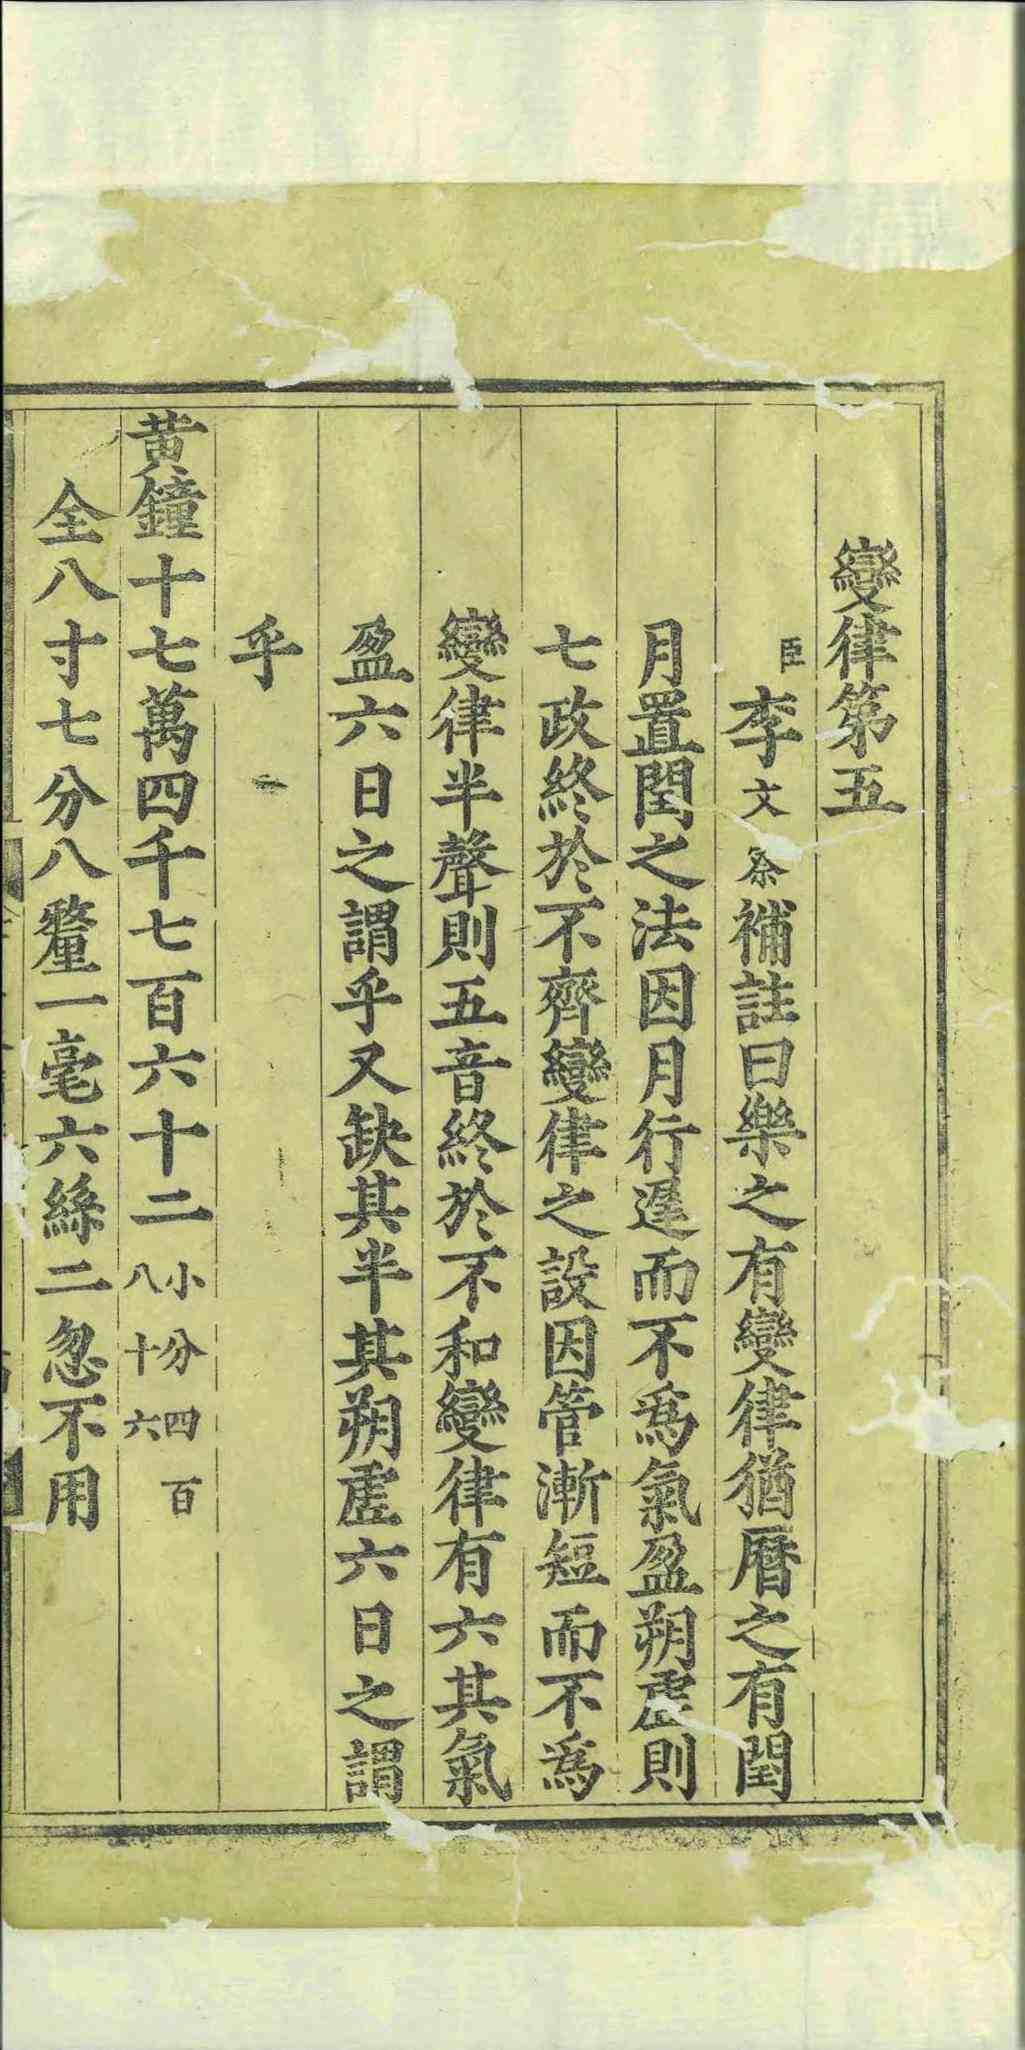 變律第五
臣李文察補註曰樂之有變律猶曆之有閏
月置閏之法因月行遲而不為氣盈朔虛則
七政終於不齊變律之設因管漸短而不為
變律半聲則五音終於不和變律有六其氣
盈六日之謂乎又缺其半其朔虛六日之謂
乎
黃鐘十七萬四千七百六十二小分四百八十六
全八寸七分八釐一毫六絲二忽不用